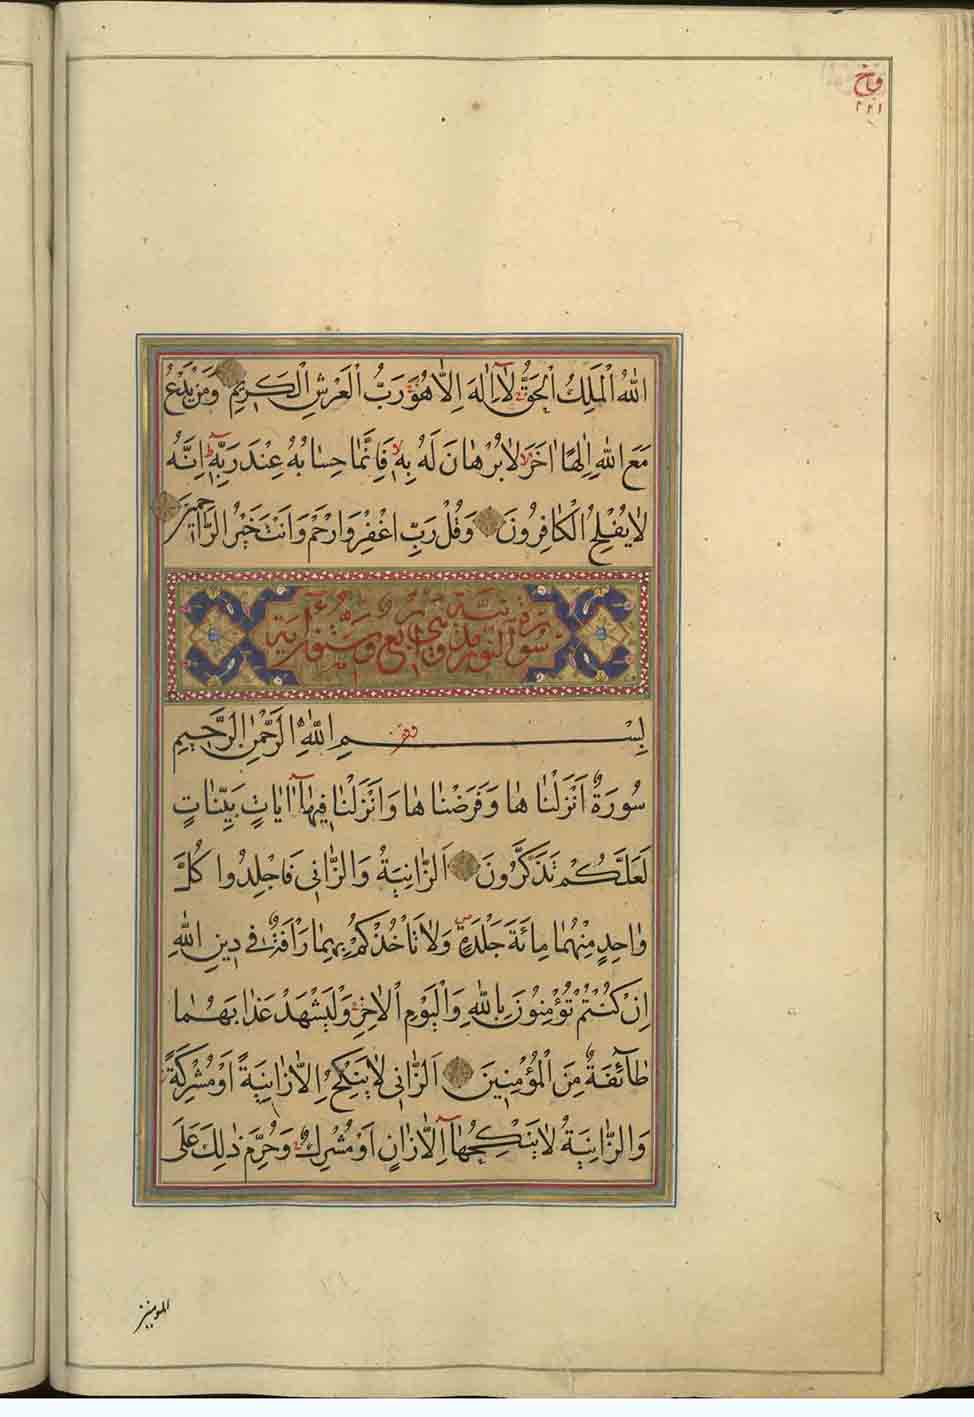 ٢٢١
اللهُ الْمَلِكُ الْحَقُّ لَا اِلٰهَ اِلَّا هُوَ رَبُّ الْعَرْشِ الْكَرِيمِ وَمَنْ يَدْعُ
مَعَ اللهِ اِلٰهًا اٰخَرَ لَا بُرْهَانَ لَهُ بِهِ فَاِنَّمَا حِسَابُهُ عِنْدَ رَبِّهِ اِنَّهُ
لَا يُفْلِحُ الْكَافِرُونَ وَقُلْ رَبِّ اغْفِرْ وَارْحَمْ وَاَنْتَ خَيْرُ الرَّاحِمِينَ
سورة النور مدنية وهي اربع وستون آية
بِسْمِ اللهِ الرَّحْمٰنِ الرَّحِيمِ
سُورَةٌ اَنْزَلْنَاهَا وَفَرَضْنَاهَا وَاَنْزَلْنَا فِيهَا اٰيَاتٍ بَيِّنَاتٍ
لَعَلَّكُمْ تَذَكَّرُونَ اَلزَّانِيَةُ وَالزَّانِي فَاجْلِدُوا كُلَّ
وَاحِدٍ مِنْهُمَا مِائَةَ جَلْدَةٍ وَلَا تَأْخُذْكُمْ بِهِمَا رَأْفَةٌ فِي دِينِ اللهِ
اِنْ كُنْتُمْ تُؤْمِنُونَ بِاللهِ وَالْيَوْمِ الْاٰخِرِ وَلْيَشْهَدْ عَذَابَهُمَا
طَائِفَةٌ مِنَ الْمُؤْمِنِينَ اَلزَّانِي لَا يَنْكِحُ اِلَّا زَانِيَةً اَوْ مُشْرِكَةً
وَالزَّانِيَةُ لَا يَنْكِحُهَا اِلَّا زَانٍ اَوْ مُشْرِكٌ وَحُرِّمَ ذٰلِكَ عَلَى
المومنين